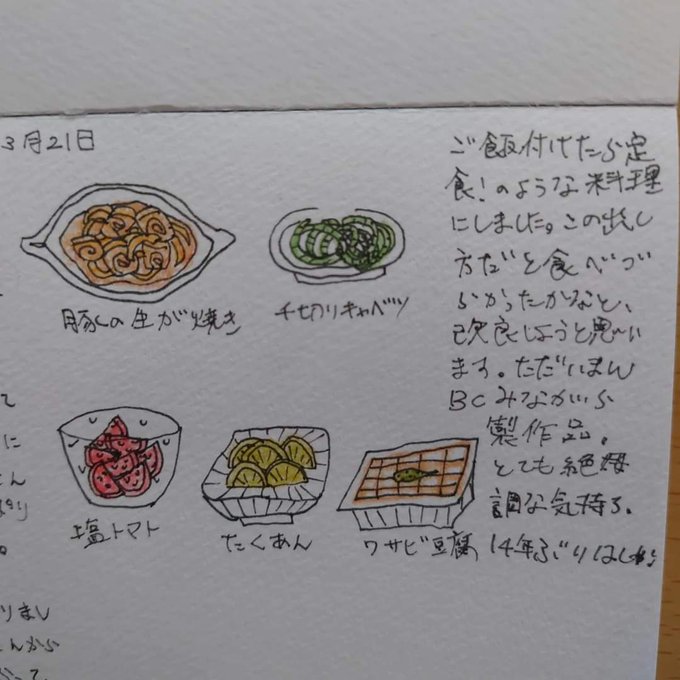 3月21日
豚しの生が焼き
千切りキャベツ
塩トマト
たくあん
ワサビ豆腐
ご飯付けたら定
食!のような料理
にしました。この出し
方だと食べづ
らかったかなと、
改良しようと思い
ます。ただいまん
BCみながら
製作品。
とても絶好
調な気持ち。
14年ぶり
て
に
りまし